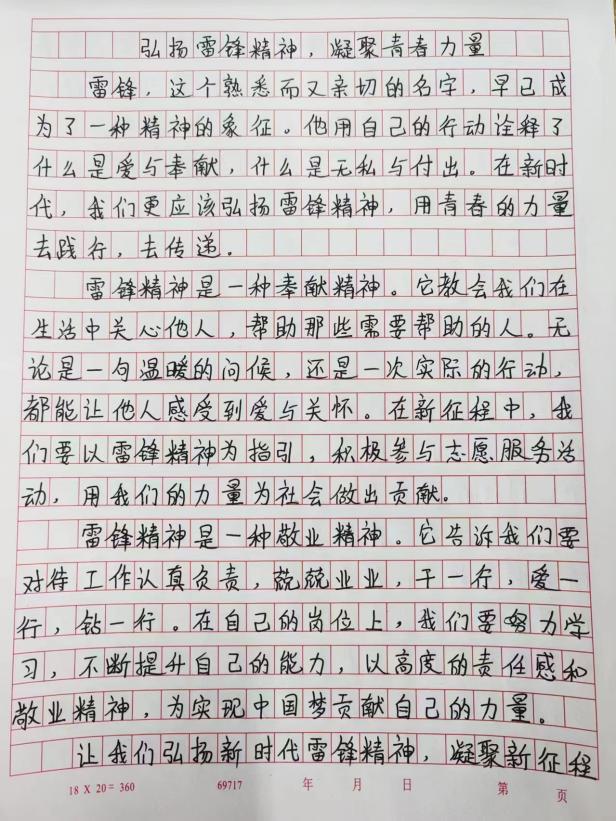 弘扬雷锋精神，凝聚青春力量
雷锋，这个熟悉而又亲切的名字，早已成
为了一种精神的象征。他用自己的行动诠释了
什么是爱与奉献，什么是无私与付出。在新时
代，我们更应该弘扬雷锋精神，用青春的力量
去践行，去传递。
雷锋精神是一种奉献精神。它教会我们在
生活中关心他人，帮助那些需要帮助的人。无
论是一句温暖的问候，还是一次实际的行动，
都能让他人感受到爱与关怀。在新征程中，我
们要以雷锋精神为指引，积极参与志愿服务活
动，用我们的力量为社会做出贡献。
雷锋精神是一种敬业精神。它告诉我们要
对待工作认真负责，兢兢业业，干一行，爱一
行，钻一行。在自己的岗位上，我们要努力学
习，不断提升自己的能力，以高度的责任感和
敬业精神，为实现中国梦贡献自己的力量。
让我们弘扬新时代雷锋精神，凝聚新征程
18 X 20 = 360 69717 年 月 日 第 页